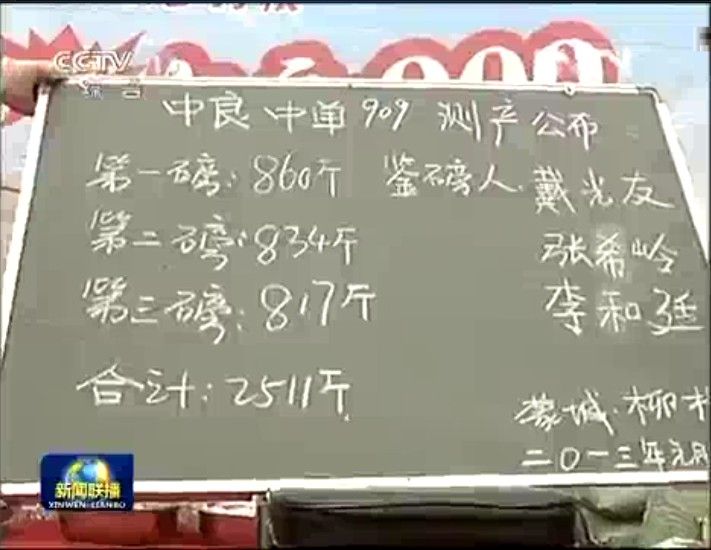 CCTV
综合
中良 中单 909 测产公布
第一磅: 860斤 鉴磅人. 戴光友
第二磅: 834斤 张希岭
第三磅: 817斤 李和廷
合计: 2511斤
蒙城. 柳
二〇一三年元月
新闻联播
XINWEN LIANBO